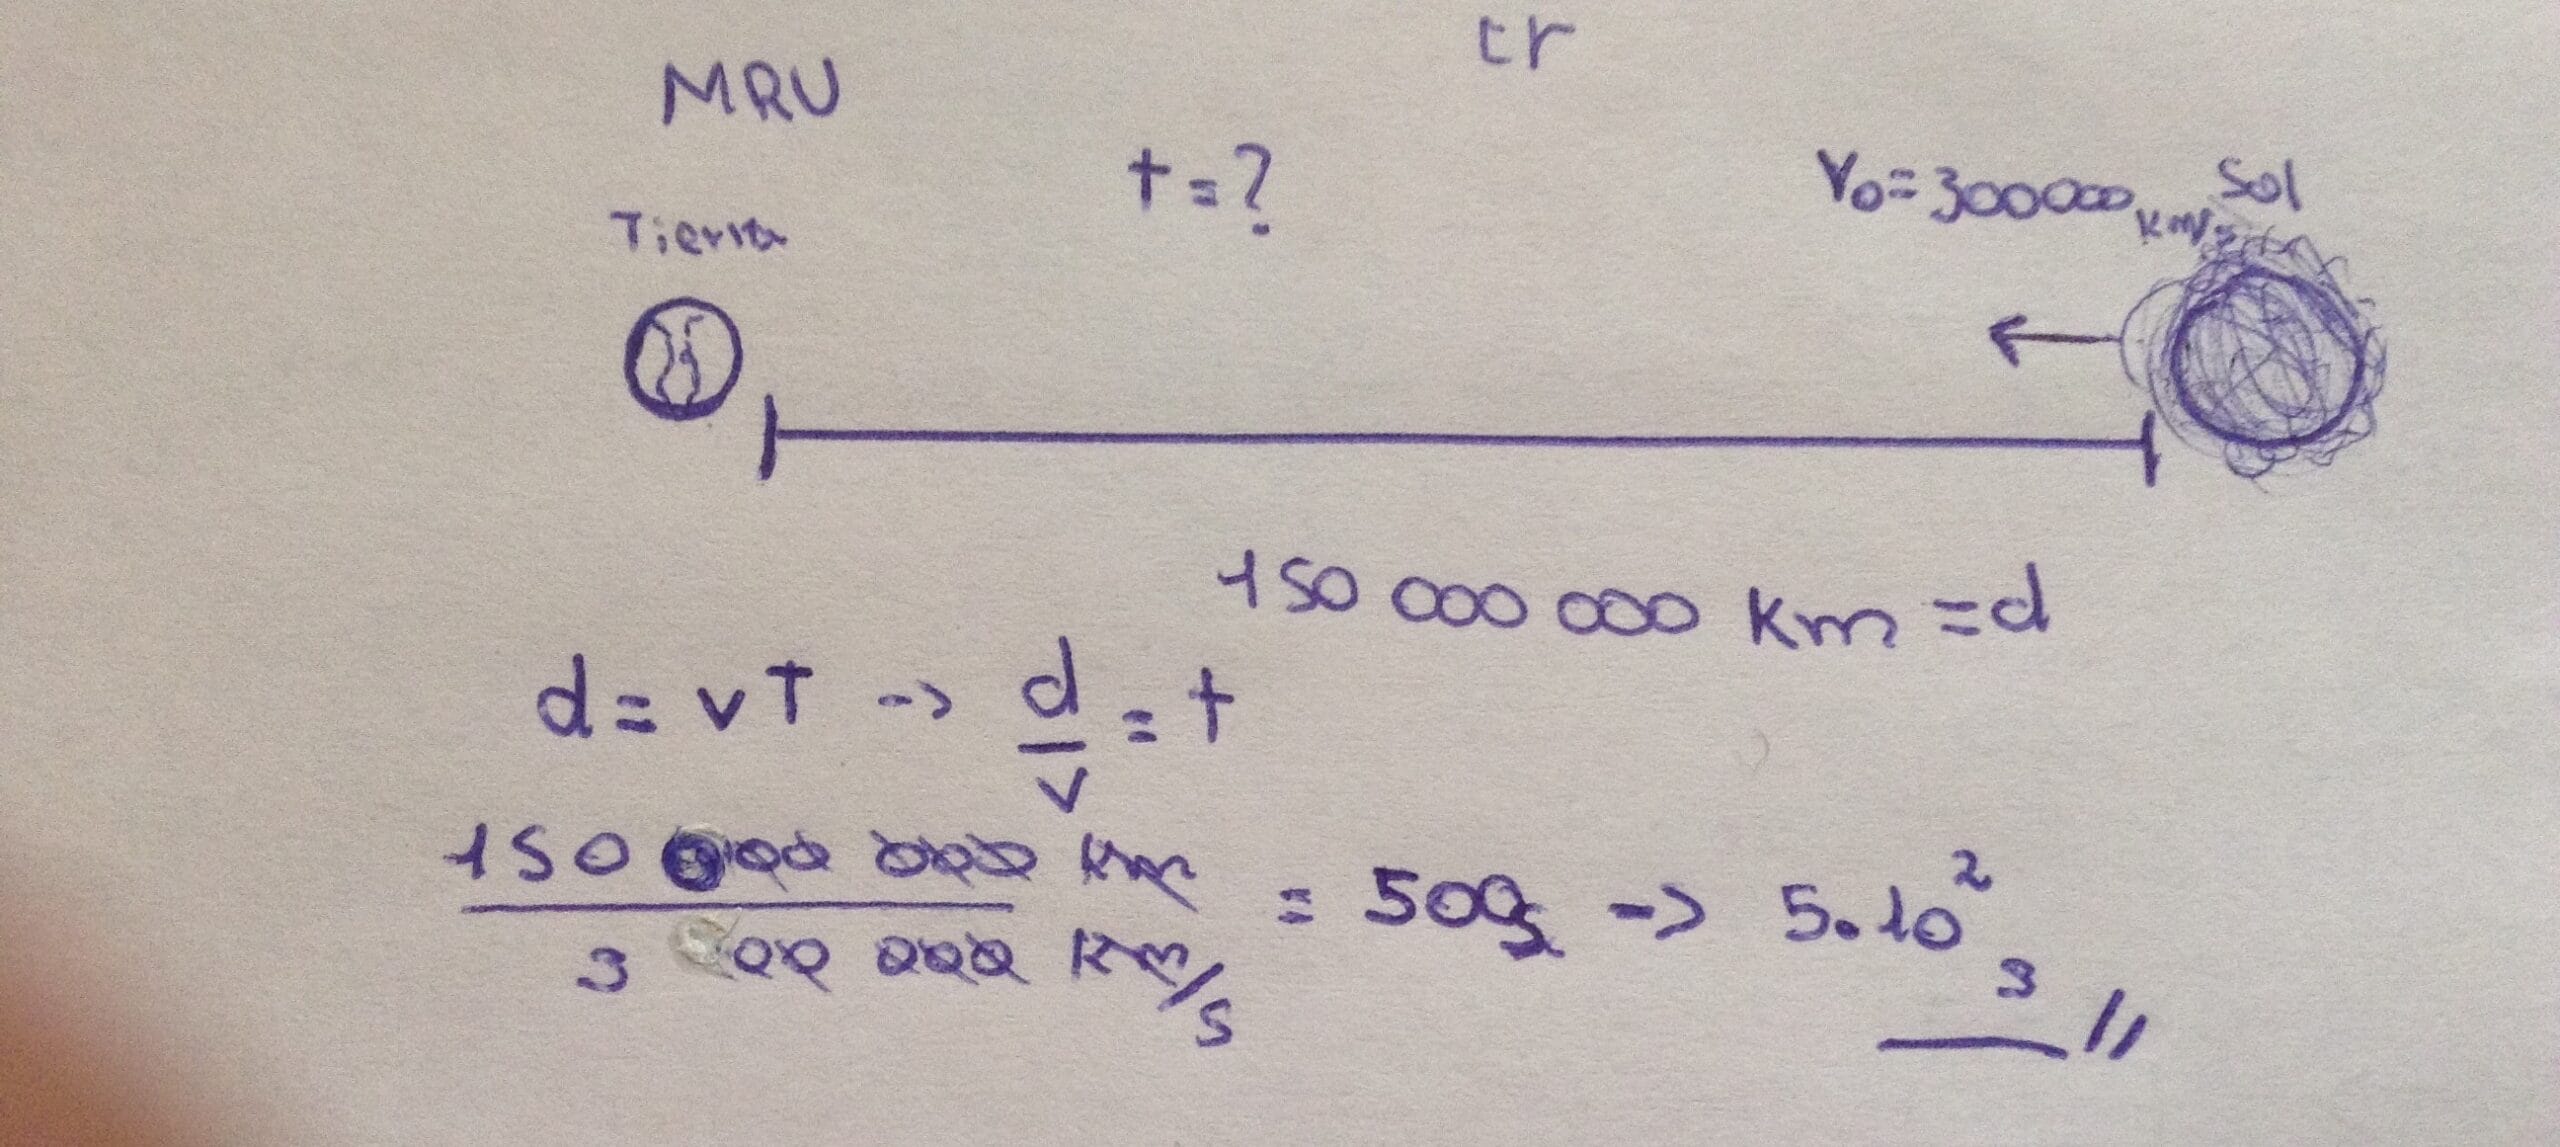 cr
MRU
t = ?
V₀ = 300000 km/s
Sol
Tierra
150 000 000 Km = d
d = vT -> d/v = t
150 000 000 Km / 3 00 000 Km/s = 500s -> 5.10² s